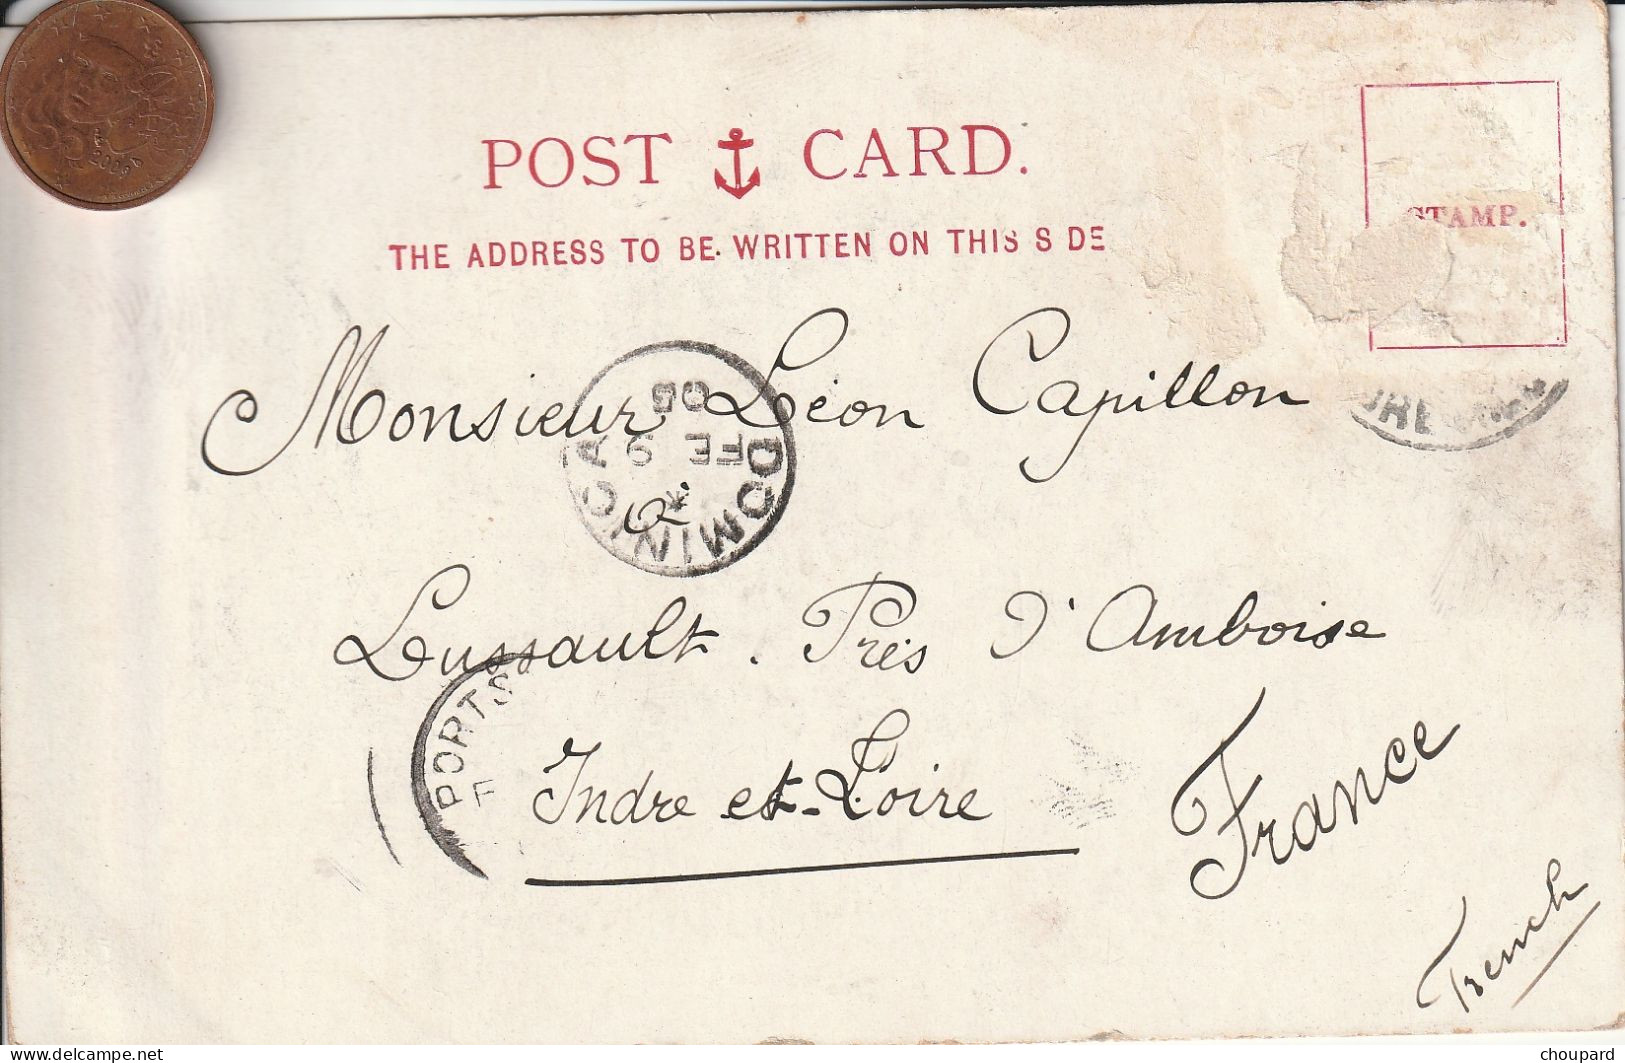 2006
POST CARD.
STAMP.
THE ADDRESS TO BE WRITTEN ON THIS S DE
Monsieur Léon Capillon
DOMINICA
FE 9
Lussault. Près d'Amboise
PORTS
Indre et-Loire
France
French
www.delcampe.net
choupard